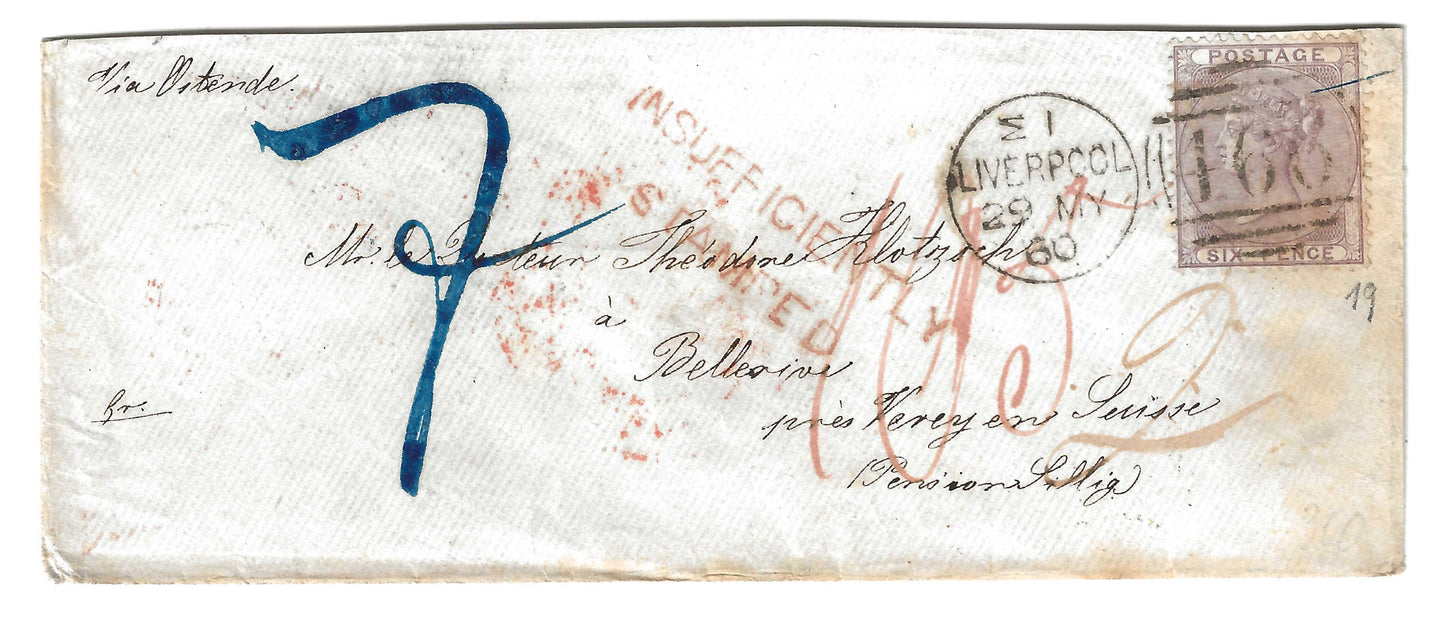 Via Ostende.
7
INSUFFICIENTLY
STAMPED
Σ 1
LIVERPOOL
29 MY
60
466
POSTAGE
SIX PENCE
Mr. le Docteur Théodore Klotzsch
à
Bellerive
près Vevey en Suisse
(Pension Sillig)
fr.
2
19